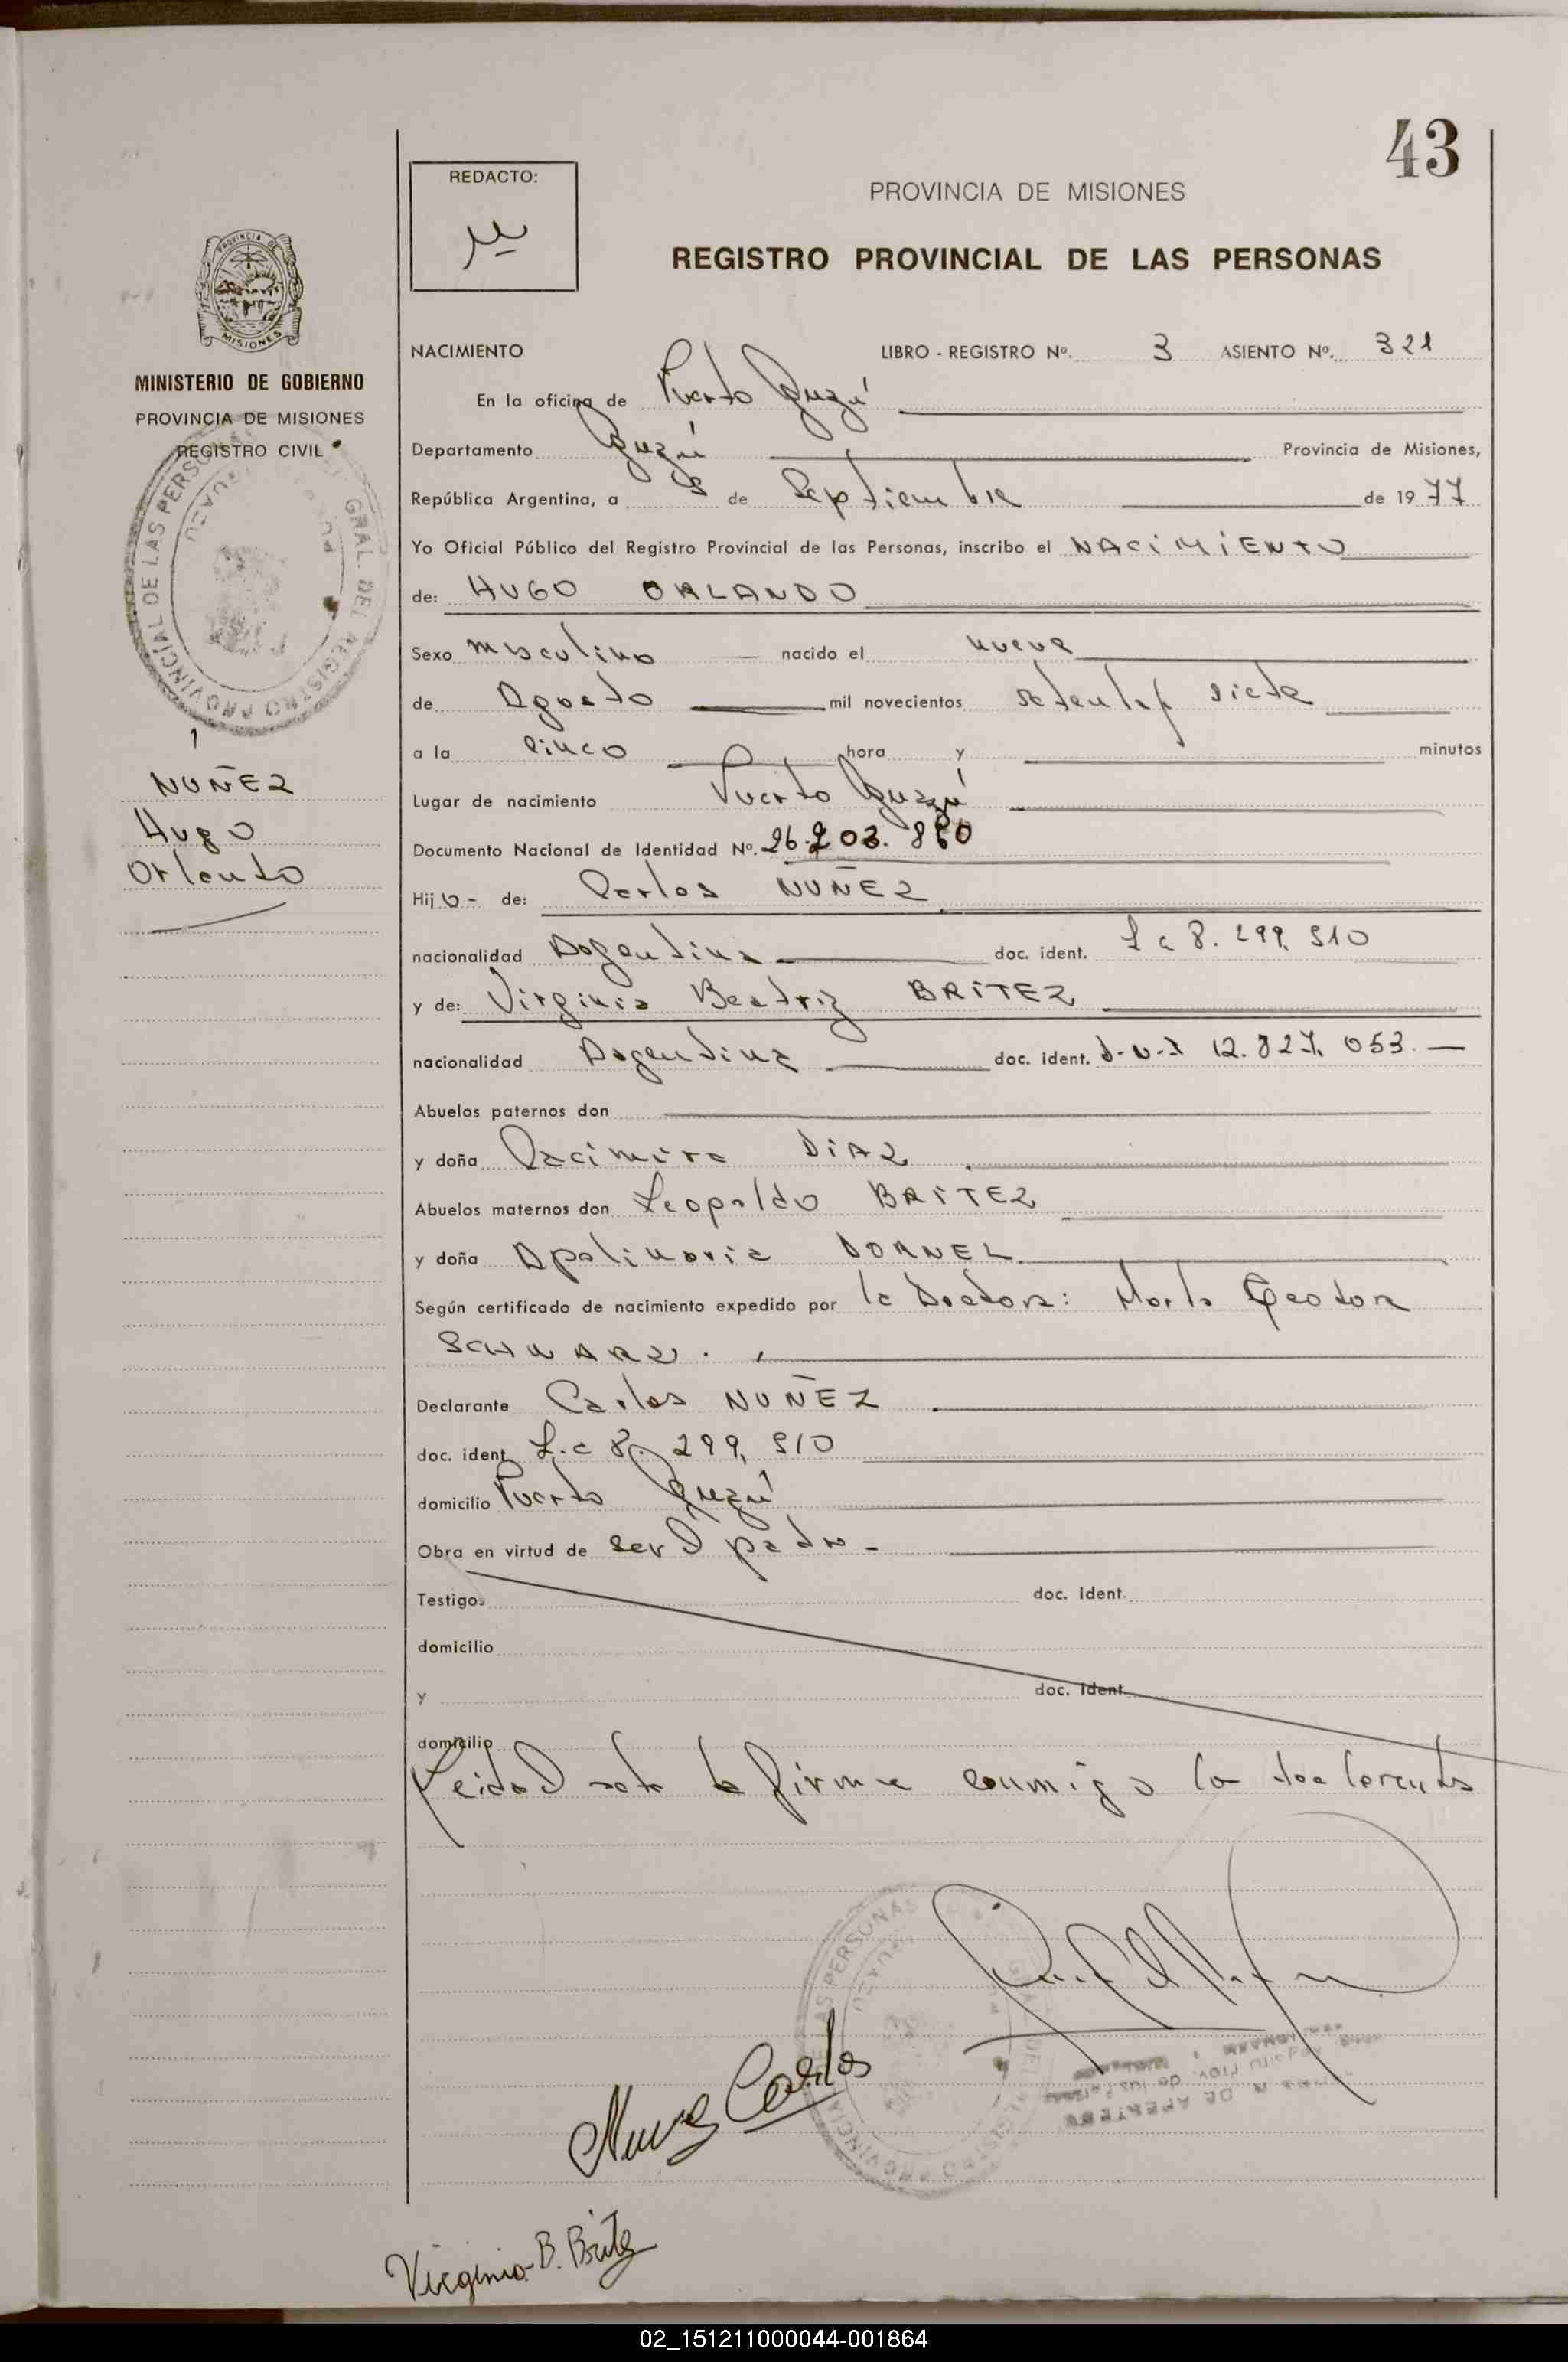 43
REDACTO:
PROVINCIA DE MISIONES
REGISTRO PROVINCIAL DE LAS PERSONAS
PROVINCIA DE
MISIONES
MINISTERIO DE GOBIERNO
PROVINCIA DE MISIONES
REGISTRO CIVIL
NUÑEZ
Hugo
Orlando
NACIMIENTO LIBRO - REGISTRO Nº. 3 ASIENTO Nº. 321
En la oficina de Puerto Iguazú
Departamento Iguazú Provincia de Misiones,
República Argentina, a de Septiembre de 1977
Yo Oficial Público del Registro Provincial de las Personas, inscribo el NACIMIENTO
de: HUGO ORLANDO
Sexo masculino nacido el nueve
de Agosto mil novecientos setenta y siete
a la cinco hora y minutos
Lugar de nacimiento Puerto Iguazú
Documento Nacional de Identidad Nº. 26.203.860
Hijo - de: Carlos NUÑEZ
nacionalidad Argentina doc. ident. L c 8. 299. 910
y de: Virginia Beatriz BRITEZ
nacionalidad Argentina doc. ident. d.n.i 12.827.053.-
Abuelos paternos don
y doña Casimira DIAZ
Abuelos maternos don Leopoldo BRITEZ
y doña Apolinaria DORNEL
Según certificado de nacimiento expedido por la Doctora: Marta Teodora
SCHWARZ.
Declarante Carlos NUÑEZ
doc. ident. L.c 8. 299. 910
domicilio Puerto Iguazú
Obra en virtud de ser el padre -
Testigos doc. ident.
domicilio
y doc. ident.
domicilio
Leida el acta la firma conmigo la declarante
Nuñez Carlos
Virginia B. Britez
02_151211000044-001864